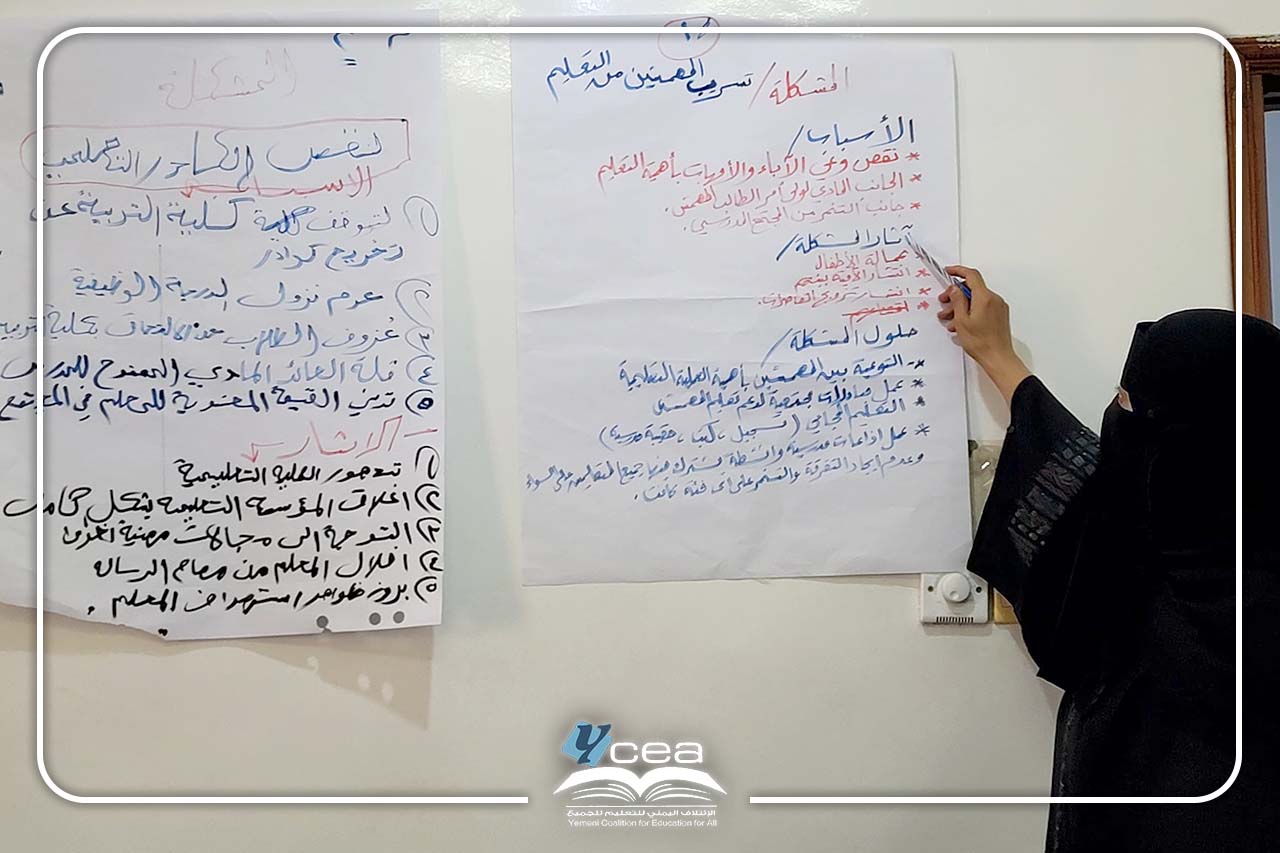 م١
المشكلة / تسريب المهمشين من التعليم
الأسباب /
* نقص وعي الآباء والأمهات بأهمية التعليم
* الجانب المادي لولي أمر الطالب المهمش.
* جانب التنمر من المجتمع المدرسي.
آثار المشكلة /
عمالة الأطفال
* انتشار الأمية بينهم
* انتشار القاصرات.
حلول المشكلة /
*- التوعية بين المهمشين بأهمية العملية التعليمية
* عمل مبادرات مجتمعية لدعم تعليم المهمشين
* التعليم المجاني (تسجيل، كتب، حقيبة مدرسية)
* عمل اذاعات مدرسية وانشطة تشترك فيها جميع على السواء
وعدم إيجاد التفرقة والتنمر على اي فئة كانت.
المشكلة
نقص الكادر التعليمي
الاسباب
١) توقف كلية التربية عن
تخريج كوادر
٢) عدم نزول الدرجة الوظيفية
٣) عزوف الطلاب عن الالتحاق بكلية التربية
٤) قلة العائد المادي الممنوح للمدرس
٥) تدني القيمة المعنوية للمعلم في المجتمع
- الاثار
١) تدهور العملية التعليمية
٢) اغلاق المؤسسة التعليمية بشكل كامل
٣) التوجة الى مجالات مهنية اخرى
٤) المعلم من الرسالة
٥) بروز ظواهر استهداف المعلم .
Ycea
الائتلاف اليمني للتعليم للجميع
Yemeni Coalition for Education for All